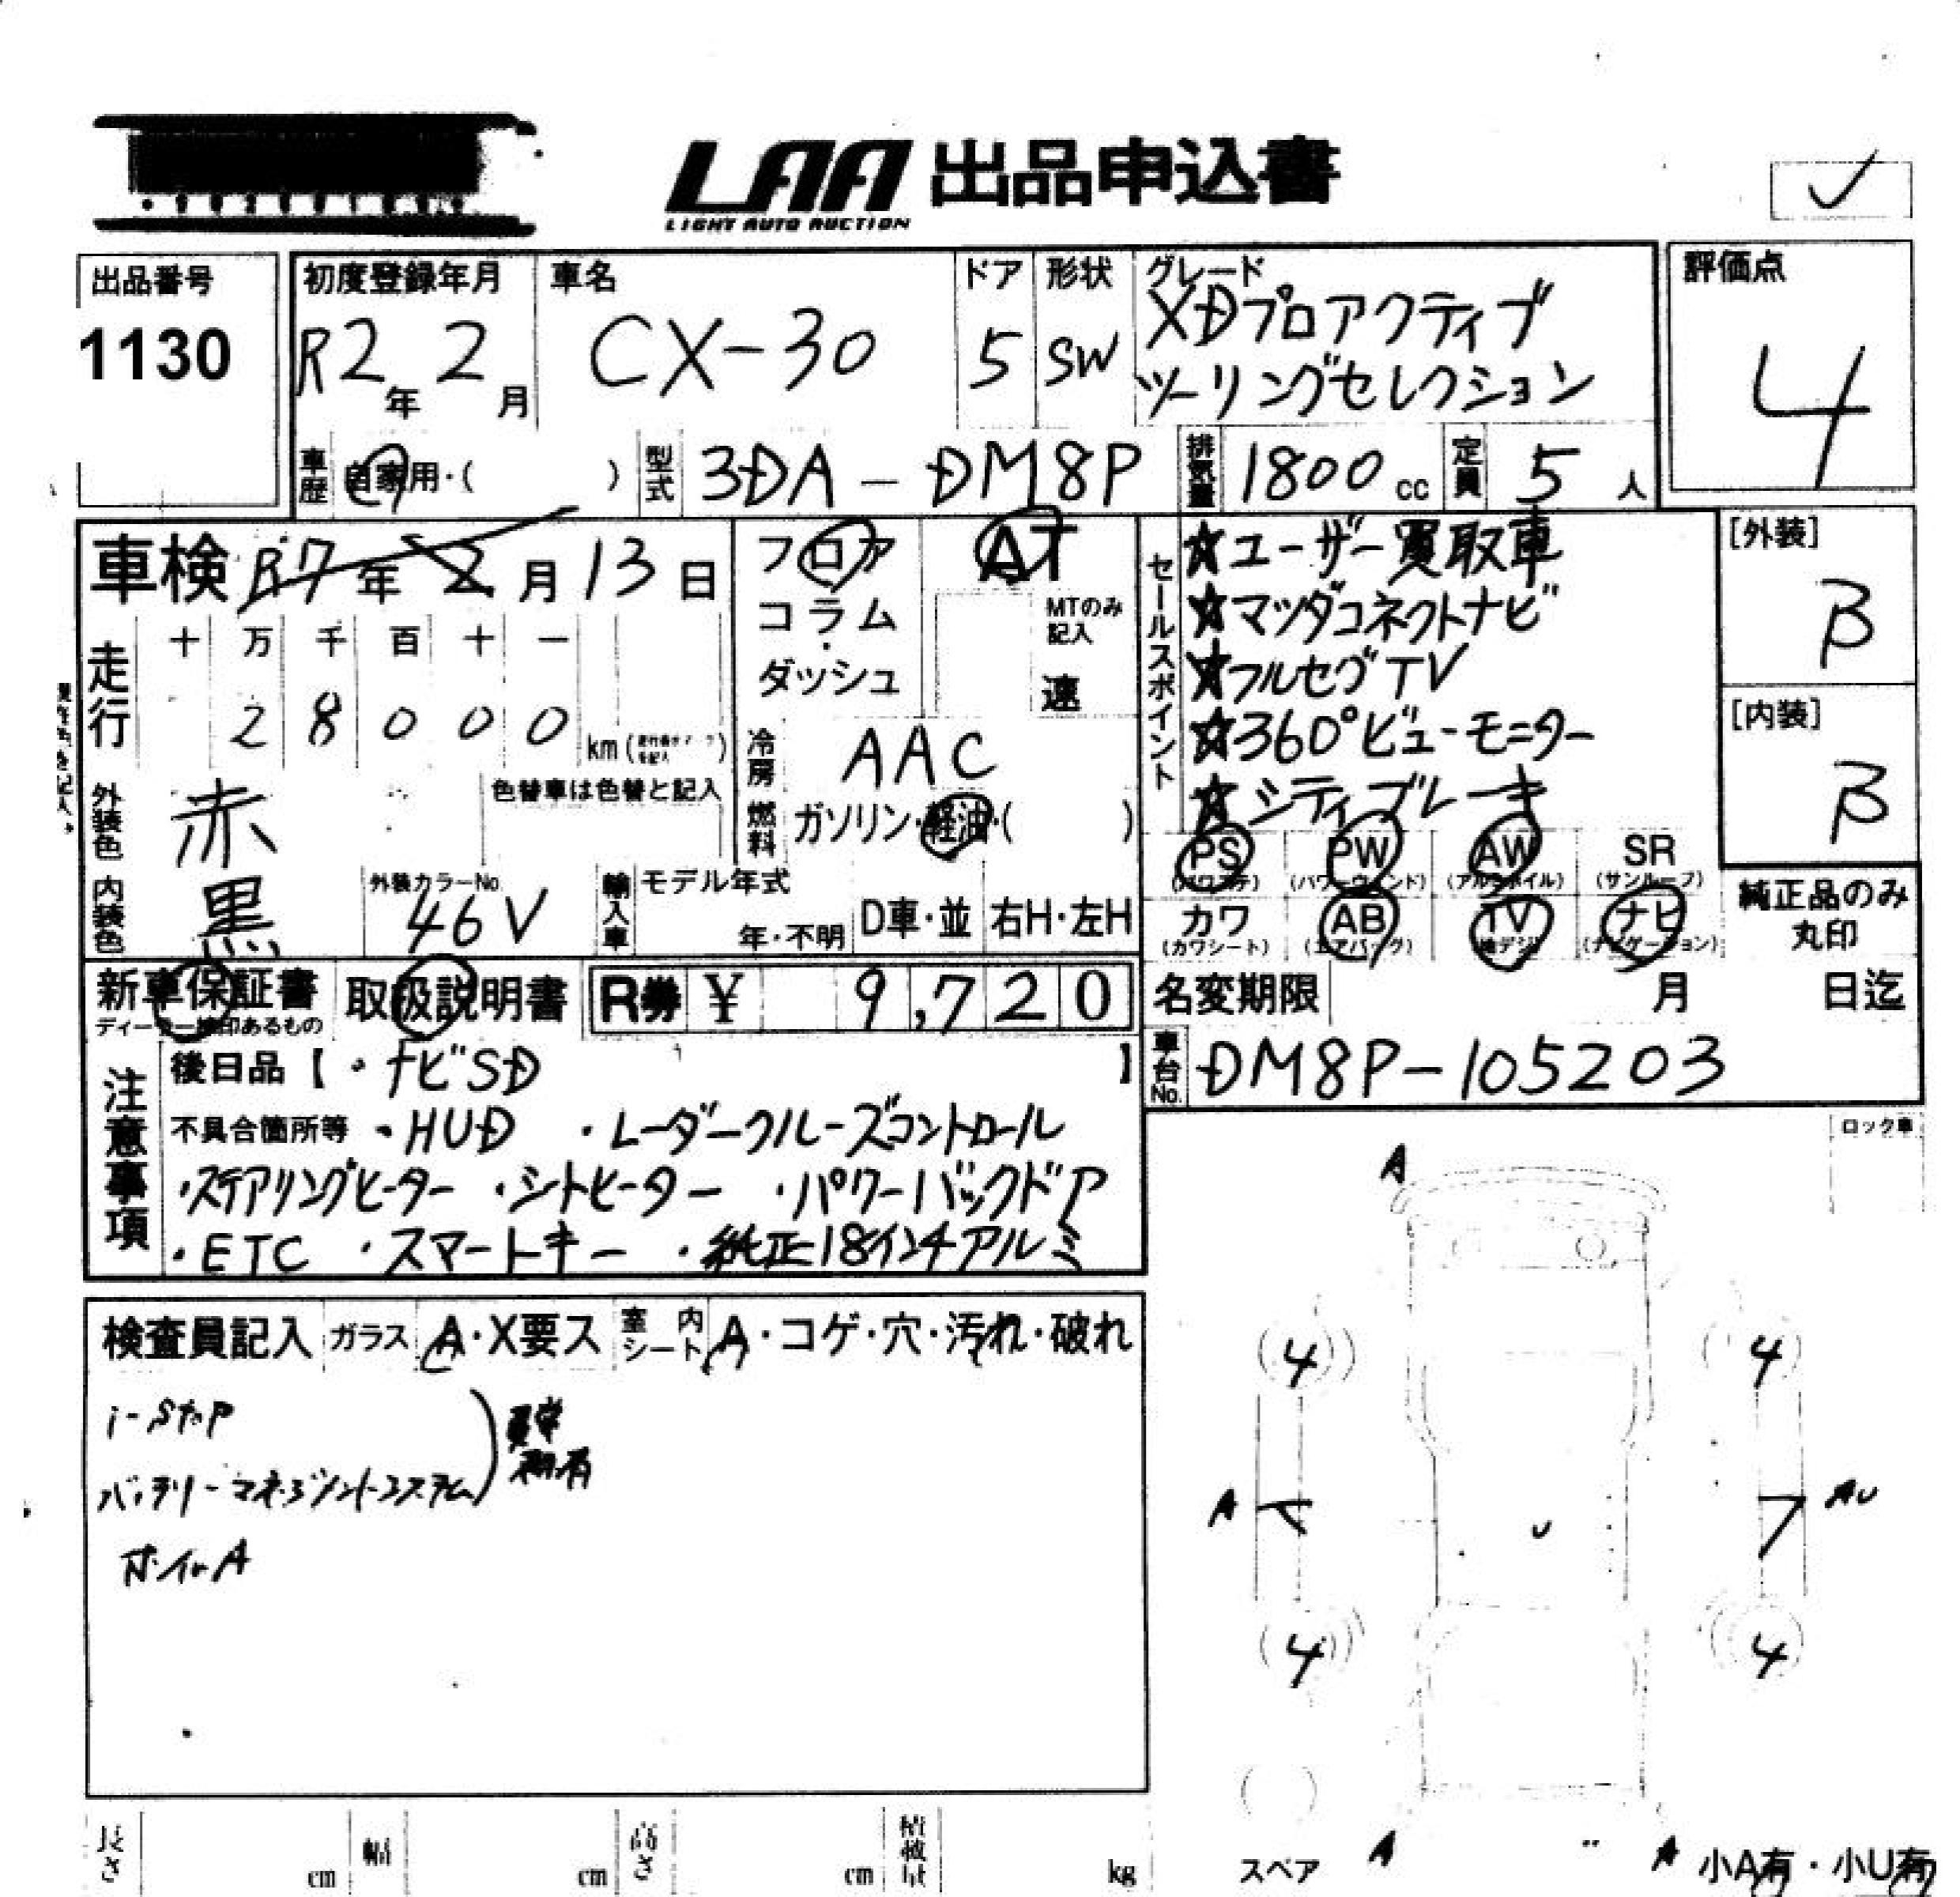 LAA 出品申込書
LIGHT AUTO AUCTION
✓
出品番号
1130
初度登録年月
R2年 2月
車名
CX-30
ドア
5
形状
SW
グレード
XDプロアクティブ
ツーリングセレクション
評価点
4
車歴 自家用・( )
型式 3DA-DM8P
排気量 1800cc
定員 5人
車検 R7年 2月 13日
フロア
コラム
・
ダッシュ
AT
MTのみ記入
速
走行
十 万 千 百 十 一
2 8 0 0 0 km
冷房 AAC
燃料 ガソリン・軽油・( )
外装色 赤
色替車は色替と記入
内装色 黒
外装カラーNo.
46V
輸入車
モデル年式
年・不明
D車・並
右H・左H
セールスポイント
☆ユーザー買取車
☆マツダコネクトナビ
☆フルセグTV
☆360°ビューモニター
☆シティブレーキ
[外装]
B
[内装]
B
PS (パワステ)
PW (パワーウィンド)
AW (アルミホイル)
SR (サンルーフ)
カワ (カワシート)
AB (エアバッグ)
TV (地デジ)
ナビ (ナビゲーション)
純正品のみ
丸印
新車保証書
ディーラー捺印あるもの
取扱説明書
R券 ¥ 9,720
名変期限 月 日迄
車台No. DM8P-105203
注意事項
後日品【・ナビSD 】
不具合箇所等 ・HUD ・レーダークルーズコントロール
・ステアリングヒーター ・シートヒーター ・パワーバックドア
・ETC ・スマートキー ・純正18インチアルミ
ロック車
検査員記入 ガラス A・X要ス 室内シート A・コゲ・穴・汚れ・破れ
i-stop
バッテリーマネジメントシステム
ホイルA
A
4 4
A AU
U
4 4
スペア
A A
小A有・小U有
長さ cm
幅 cm
高さ cm
積載量 kg